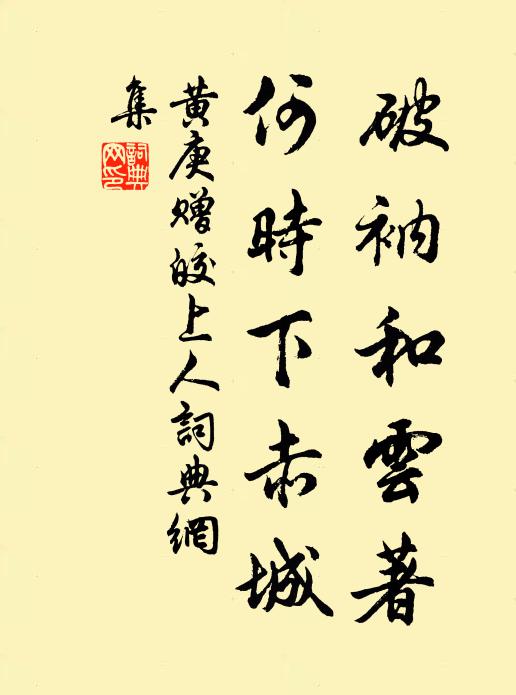 破衲和雲著
何時下赤城
黄庚贈皎上人詞典網
集
詞典
网印